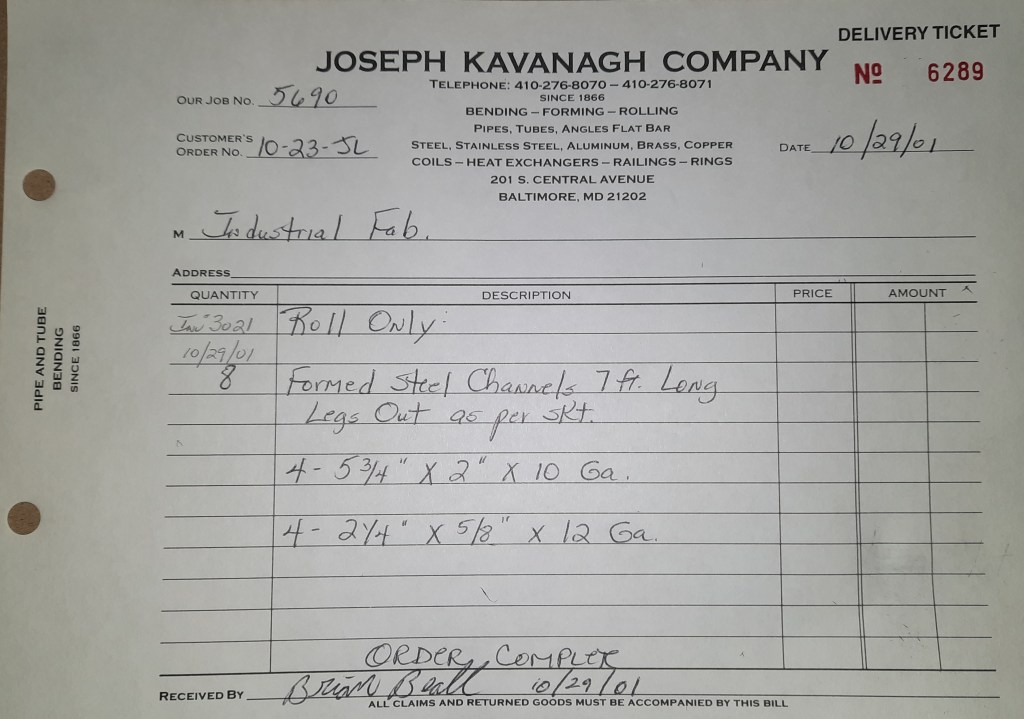 DELIVERY TICKET
JOSEPH KAVANAGH COMPANY
Nº 6289
TELEPHONE: 410-276-8070 – 410-276-8071
SINCE 1866
OUR JOB NO. 5690
BENDING – FORMING – ROLLING
PIPES, TUBES, ANGLES FLAT BAR
CUSTOMER'S
ORDER NO. 10-23-JL
STEEL, STAINLESS STEEL, ALUMINUM, BRASS, COPPER
DATE 10/29/01
COILS – HEAT EXCHANGERS – RAILINGS – RINGS
201 S. CENTRAL AVENUE
BALTIMORE, MD 21202
M Industrial Fab.
ADDRESS
QUANTITY DESCRIPTION PRICE AMOUNT
Inv# 3021 Roll Only:
10/29/01
8 Formed Steel Channels 7 ft. Long
Legs Out as per skt.
4 - 5 3/4" X 2" X 10 Ga.
4 - 2 1/4" X 5/8" X 12 Ga.
ORDER COMPLETE
RECEIVED BY Brian Beall 10/29/01
ALL CLAIMS AND RETURNED GOODS MUST BE ACCOMPANIED BY THIS BILL
PIPE AND TUBE
BENDING
SINCE 1866